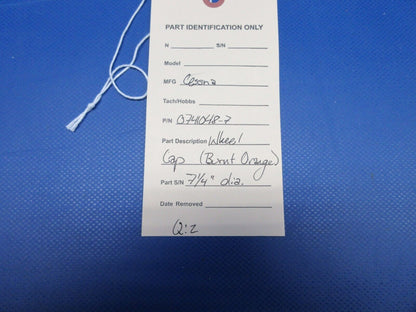 PART IDENTIFICATION ONLY
N S/N
Model
MFG Cessna
Tach/Hobbs
P/N 0741048-7
Part Description Wheel
Cap (Burnt Orange)
Part S/N 7 1/4" dia.
Date Removed
Q:2